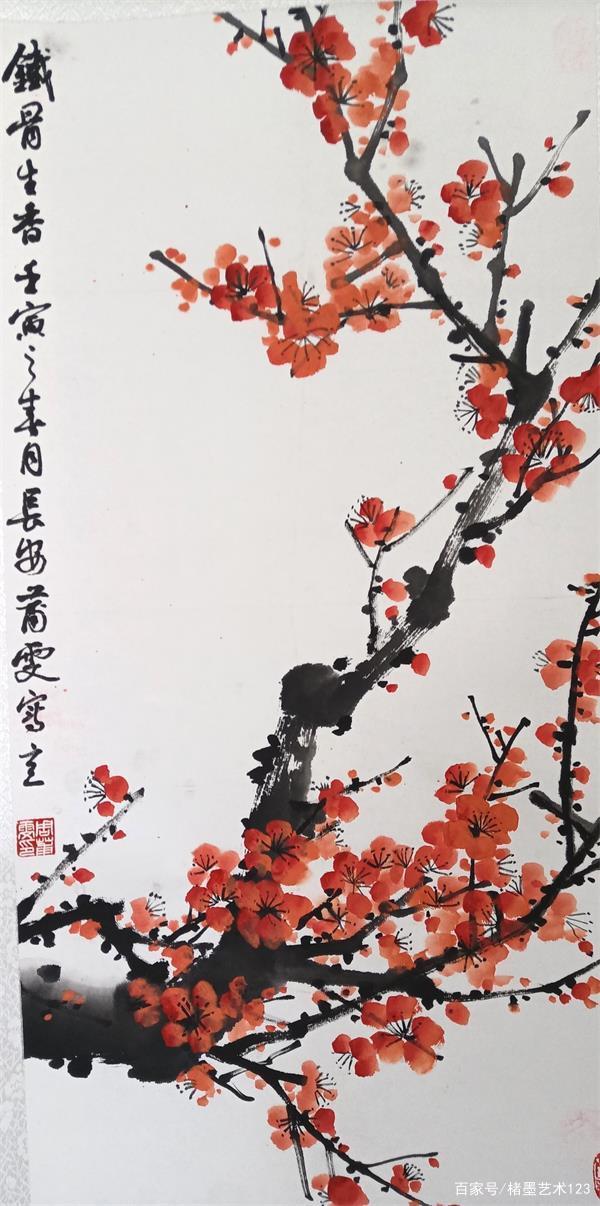 鐵骨生香壬寅之春月長安蒲雯寫意
周蒲雯印
百家号/楮墨艺术123